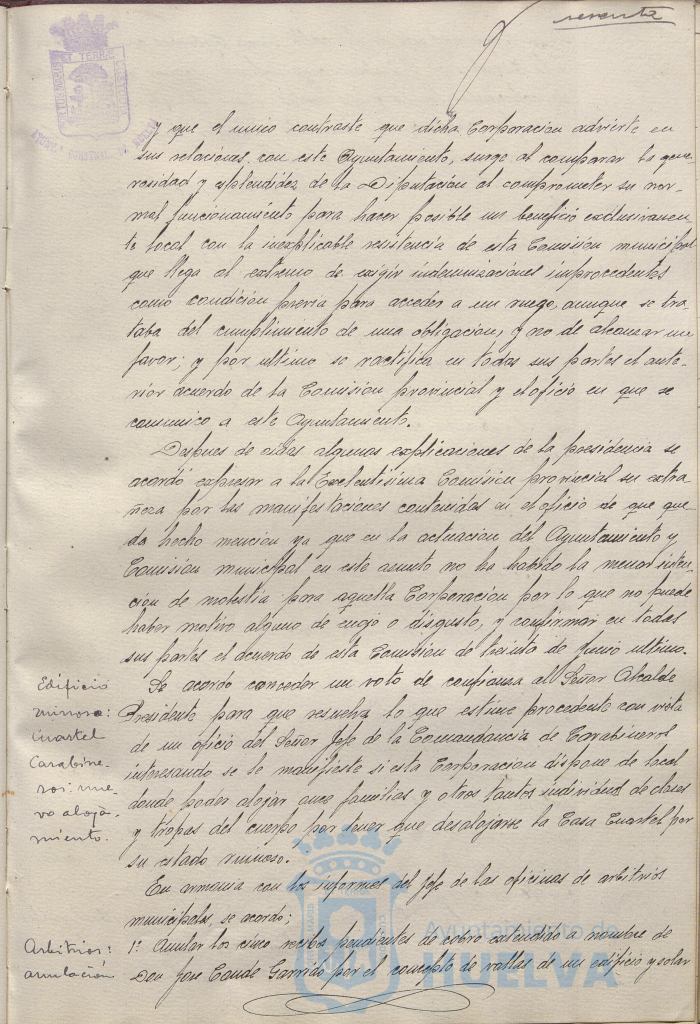 sesenta
y que el unico contraste que dicha Corporacion advierte en
sus relaciones con este Ayuntamiento, surge al comparar la gene-
rosidad y esplendidez de la Diputacion al comprometer su nor-
mal funcionamiento para hacer posible un beneficio exclusivamen-
te local con la inexplicable resistencia de esta Comision municipal
que llega al extremo de exigir indemnizaciones improcedentes
como condicion previa para acceder a un ruego, aunque se tra-
taba del cumplimiento de una obligacion, y no de alcanzar un
favor; y por ultimo se ractifica en todas sus partes el ante-
rior acuerdo de la Comision provincial y el oficio en que se
comunico a este Ayuntamiento.
Despues de oidas algunas explicaciones de la presidencia se
acordó expresar a la Excelentisima Comision provincial su extra
ñeza por las manifestaciones contenidas en el oficio de que que
da hecho mencion ya que en la actuacion del Ayuntamiento y
Comision municipal en este asunto no ha habido la menor inten-
cion de molestia para aquella Corporacion por lo que no puede
haber motivo alguno de enojo o disgusto, y confirmar en todas
sus partes el acuerdo de esta Comision de treinta de Junio ultimo.
Edificio
ruinoso:
Cuartel
Carabine-
ros: nue-
vo aloja-
miento.
Se acordo conceder un voto de confianza al Señor Alcalde
Presidente para que resuelva lo que estime procedente con vista
de un oficio del Señor Jefe de la Comandancia de Carabineros
interesando se le manifieste si esta Corporacion dispone de local
donde poder alojar once familias y otros tantos individuos de clases
y tropas del cuerpo por tener que desalojarse la Casa Cuartel por
su estado ruinoso.
En armonia con los informes del Jefe de las oficinas de arbitrios
municipales, se acordo;
Arbitrios:
anulación
1º Anular los cinco recibos pendientes de cobro extendido a nombre de
Don Jose Conde Garrido por el concepto de vallas de un edificio y solar
Ayuntamiento de
HUELVA